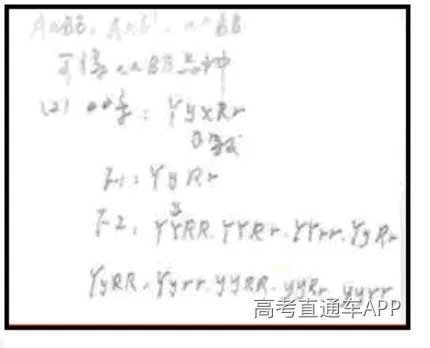 AaBB, AaB, aaBB
可得aaBB品种
(2) 亲 : YyxRr
F1: YyRr
F2: YYRR. YYRr. YYrr. YyRr
YyRR. Yyrr. yyRR. yyRr. yyrr
高考直通车APP